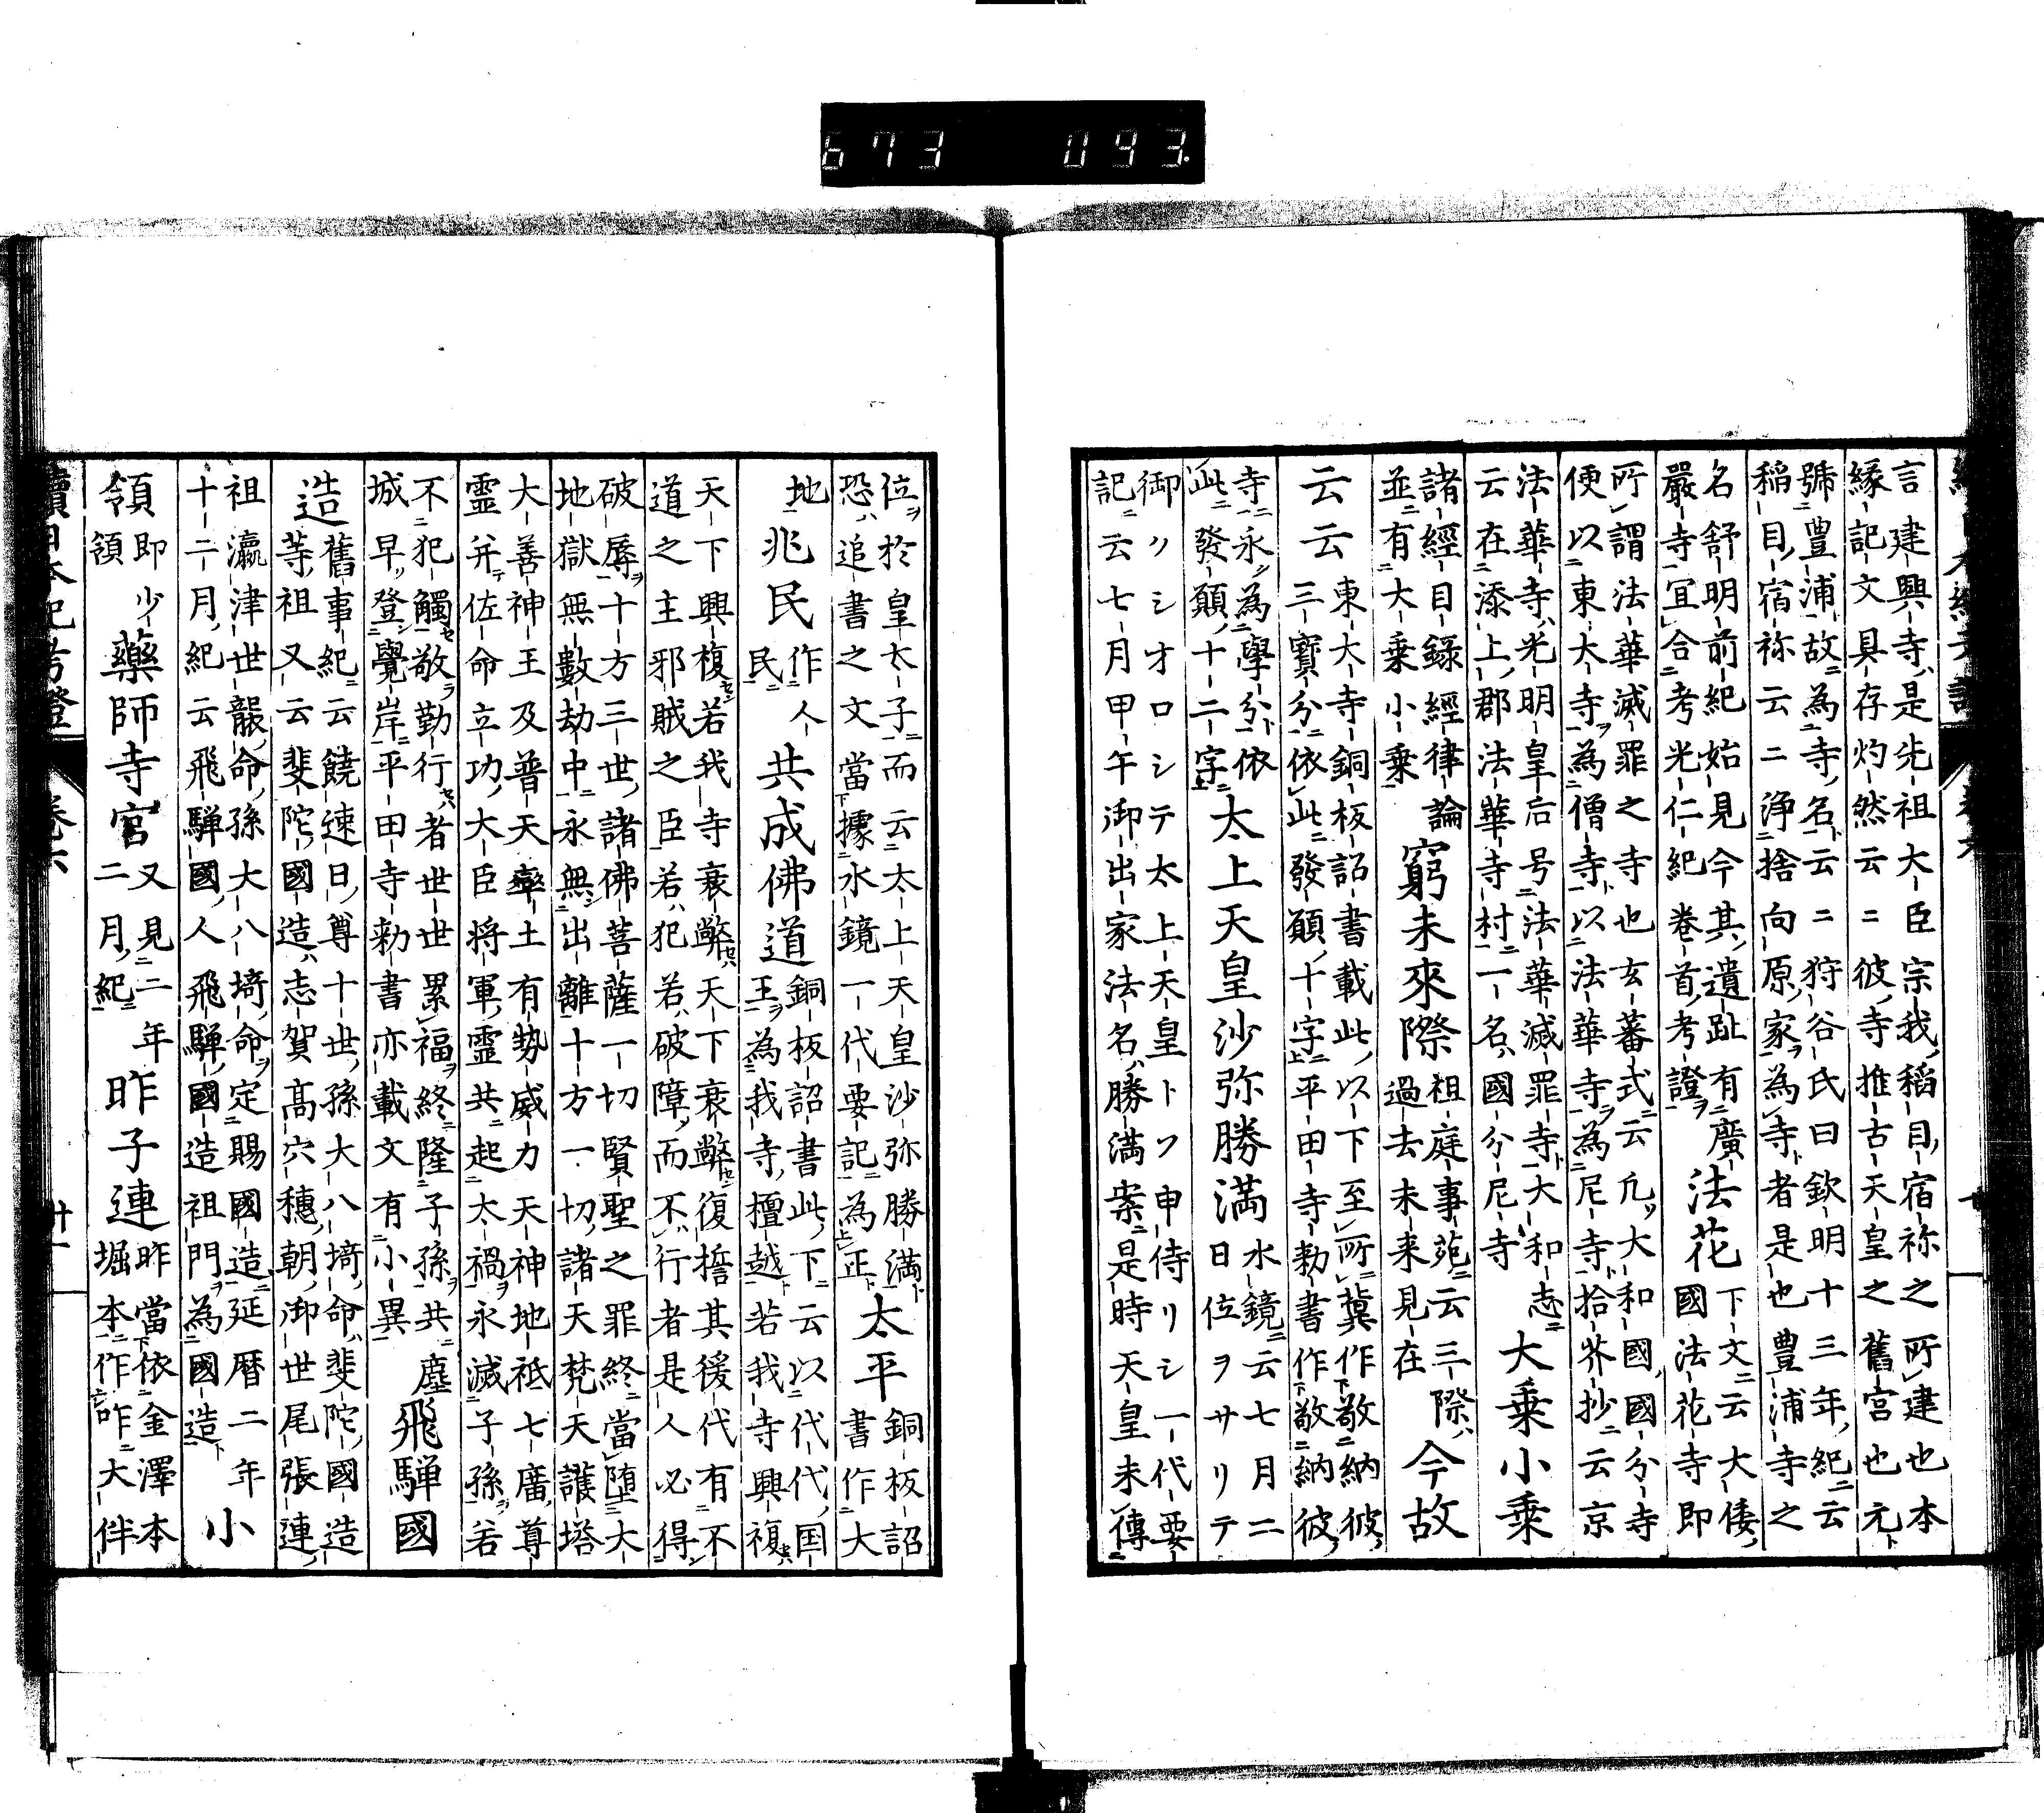 言建興寺是先祖大臣宗我稻目宿祢之所建也本
縁記文具存灼然云〻彼寺推古天皇之舊宮也元
號豊浦故為寺名云〻狩谷氏曰欽明十三年紀云
稲目宿祢云〻浄捨向原家為寺者是也豊浦寺之
名舒明前紀始見今其遺趾有廣
嚴寺宜合考光仁紀卷首考證
法花
下文云大倭
國法花寺即
所謂法華滅罪之寺也玄蕃式云凡大和國國分寺
便以東大寺為僧寺以法華寺為尼寺拾芥抄云京
法華寺光明皇后号法華滅罪寺大和志
云在添上郡法華寺村一名國分尼寺
大乗小乗
諸經目録經律論
並有大乗小乗
窮未來際
祖庭事苑云三際
過去未来見在
今故
云云
東大寺銅板詔書載此以下至所冀作敬納彼
三寳分依此發願十字平田寺勅書作敬納彼
寺永為學分依
此發願十二字
太上天皇沙弥勝満
水鏡云七月二
日位ヲサリテ
御クシオロシテ太上天皇トソ申侍リシ一代要
記云七月甲午御出家法名勝満案是時天皇未傳
位於皇太子而云太上天皇沙弥勝満
恐追書之文當據水鏡一代要記為正
太平
銅板詔
書作大
地
兆民
作人
民
共成佛道
銅板詔書此下云以代代国
王為我寺檀越若我寺興複
天下興複若我寺衰弊天下衰弊復誓其後代有不
道之主邪賊之臣若犯若破障而不行者是人必得
破辱十方三世諸佛菩薩一切賢聖之罪終當堕大
地獄無數劫中永無出離十方一切諸天梵天護塔
大善神王及普天率土有勢威力天神地祇七廣尊
霊并佐命立功大臣将軍霊共起太禍永滅子孫若
不犯觸敬勤行者世世累福終隆子孫共塵
城早登覺岸平田寺勅書亦載文有小異
飛驒國
造
舊事紀云饒速日尊十世孫大八埼命斐陀國造
等祖又云斐陀國造志賀髙穴穗朝御世尾張連
祖瀛津世襲命孫大八埼命定賜國造延暦二年
十二月紀云飛驒國人飛驒國造祖門為國造
小
領
即少
領
藥師寺宮
又見二年
二月紀
昨子連
昨當依金澤本
堀本作咋大伴
續日本紀考證
卷六
廿一